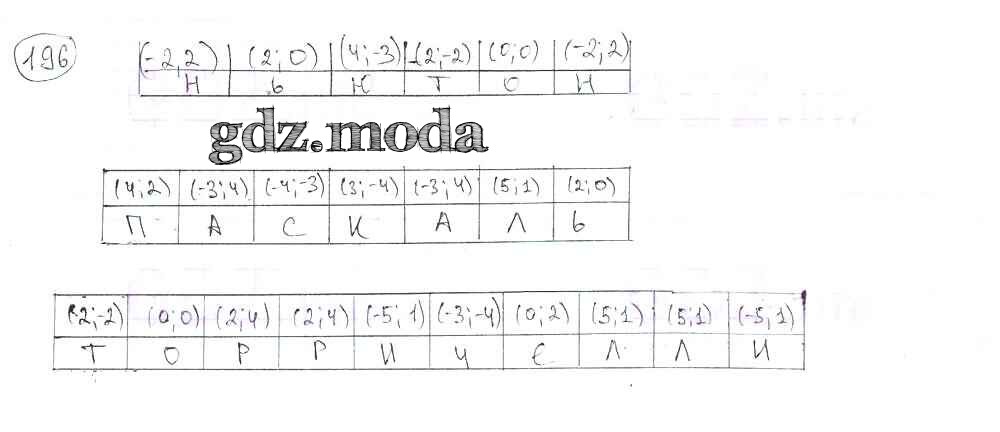 196
(-2,2) (2;0) (4;-3) (2;-2) (0;0) (-2;2)
Н Ь Ю Т О Н
gdz.moda
(4;2) (-3;4) (-4;-3) (3;-4) (-3;4) (5;1) (2;0)
П А С К А Л Ь
(-2;-2) (0;0) (2;4) (2;4) (-5;1) (-3;-4) (0;2) (5;1) (5;1) (-5;1)
Т О Р Р И Ч Е Л Л И